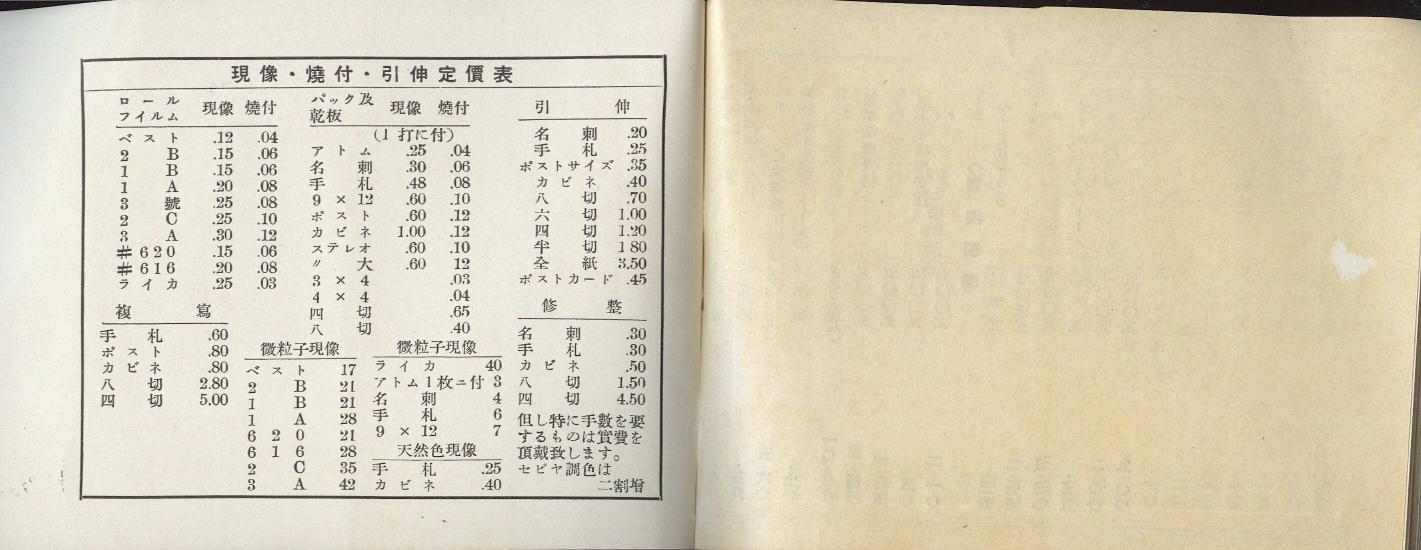 現像・燒付・引伸定價表
ロール
フイルム 現像 燒付
ベスト .12 .04
2 B .15 .06
1 B .15 .06
1 A .20 .08
3 號 .25 .08
2 C .25 .10
3 A .30 .12
#620 .15 .06
#616 .20 .08
ライカ .25 .03
複寫
手札 .60
ポスト .80
カビネ .80
八切 2.80
四切 5.00
パック及
乾板 現像 燒付
(1打に付)
アトム .25 .04
名刺 .30 .06
手札 .48 .08
9×12 .60 .10
ポスト .60 .12
カビネ 1.00 .12
ステレオ .60 .10
〃 大 .60 12
3×4 .03
4×4 .04
四切 .65
八切 .40
微粒子現像
ベスト 17
2 B 21
1 B 21
1 A 28
620 21
616 28
2 C 35
3 A 42
微粒子現像
ライカ 40
アトム1枚ニ付 3
名刺 4
手札 6
9×12 7
天然色現像
手札 .25
カビネ .40
引伸
名刺 .20
手札 .25
ポストサイズ .35
カビネ .40
八切 .70
六切 1.00
四切 1.20
半切 1 80
全紙 3.50
ポストカード .45
修整
名刺 .30
手札 .30
カビネ .50
八切 1.50
四切 4.50
但し特に手數を要
するものは實費を
頂戴致します。
セピヤ調色は
二割增